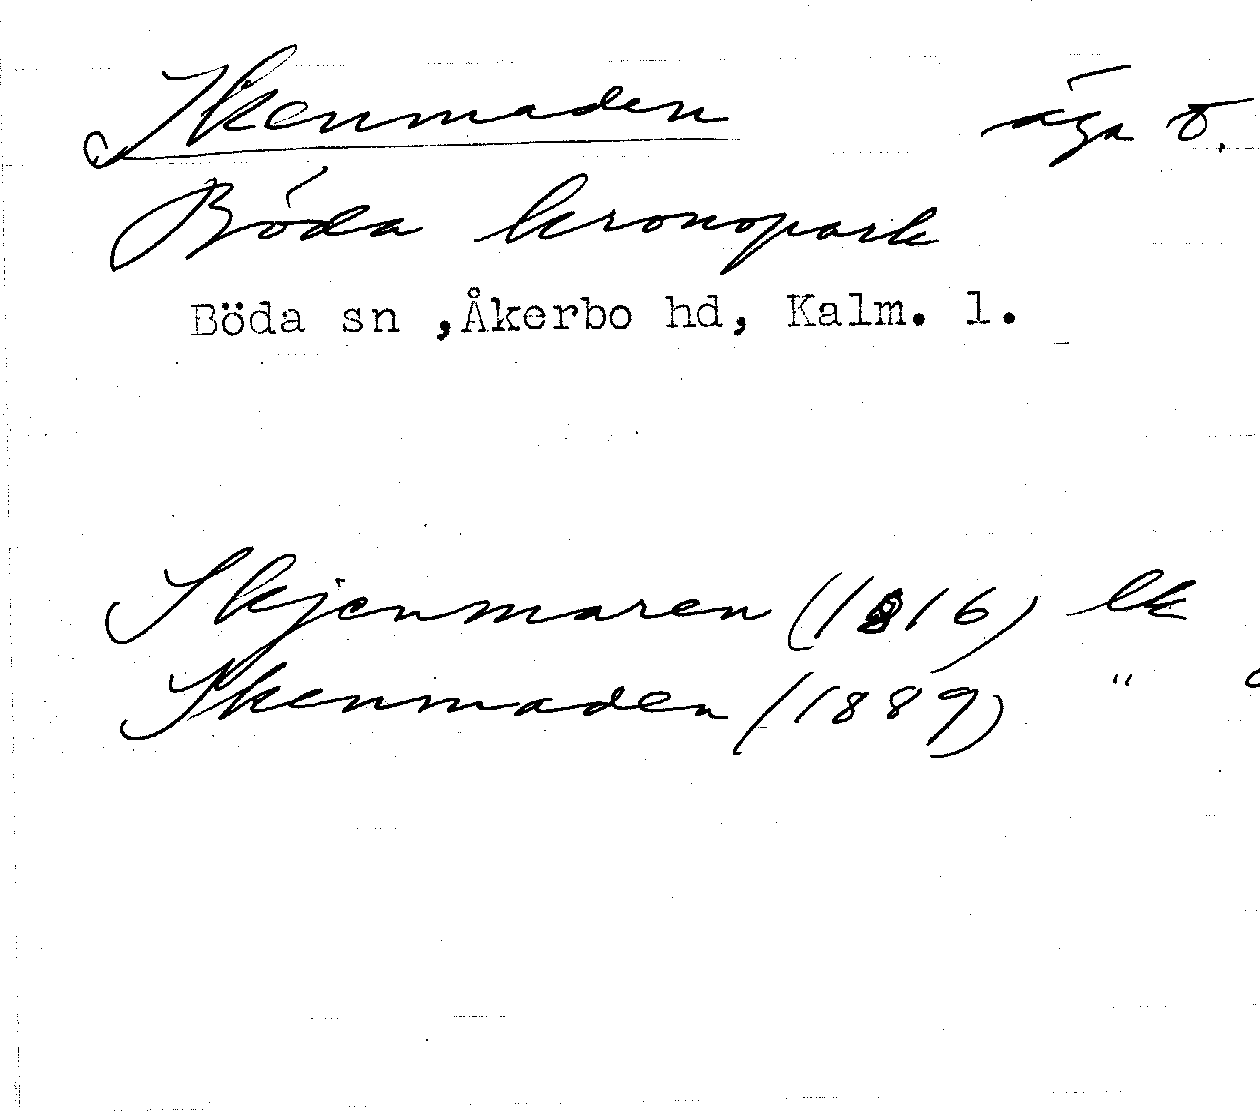 Skenmaden äga
Böda kronopark
Böda sn ,Åkerbo hd, Kalm. l.
Skjenmaren (1816) lk
Skenmaden (1889) "